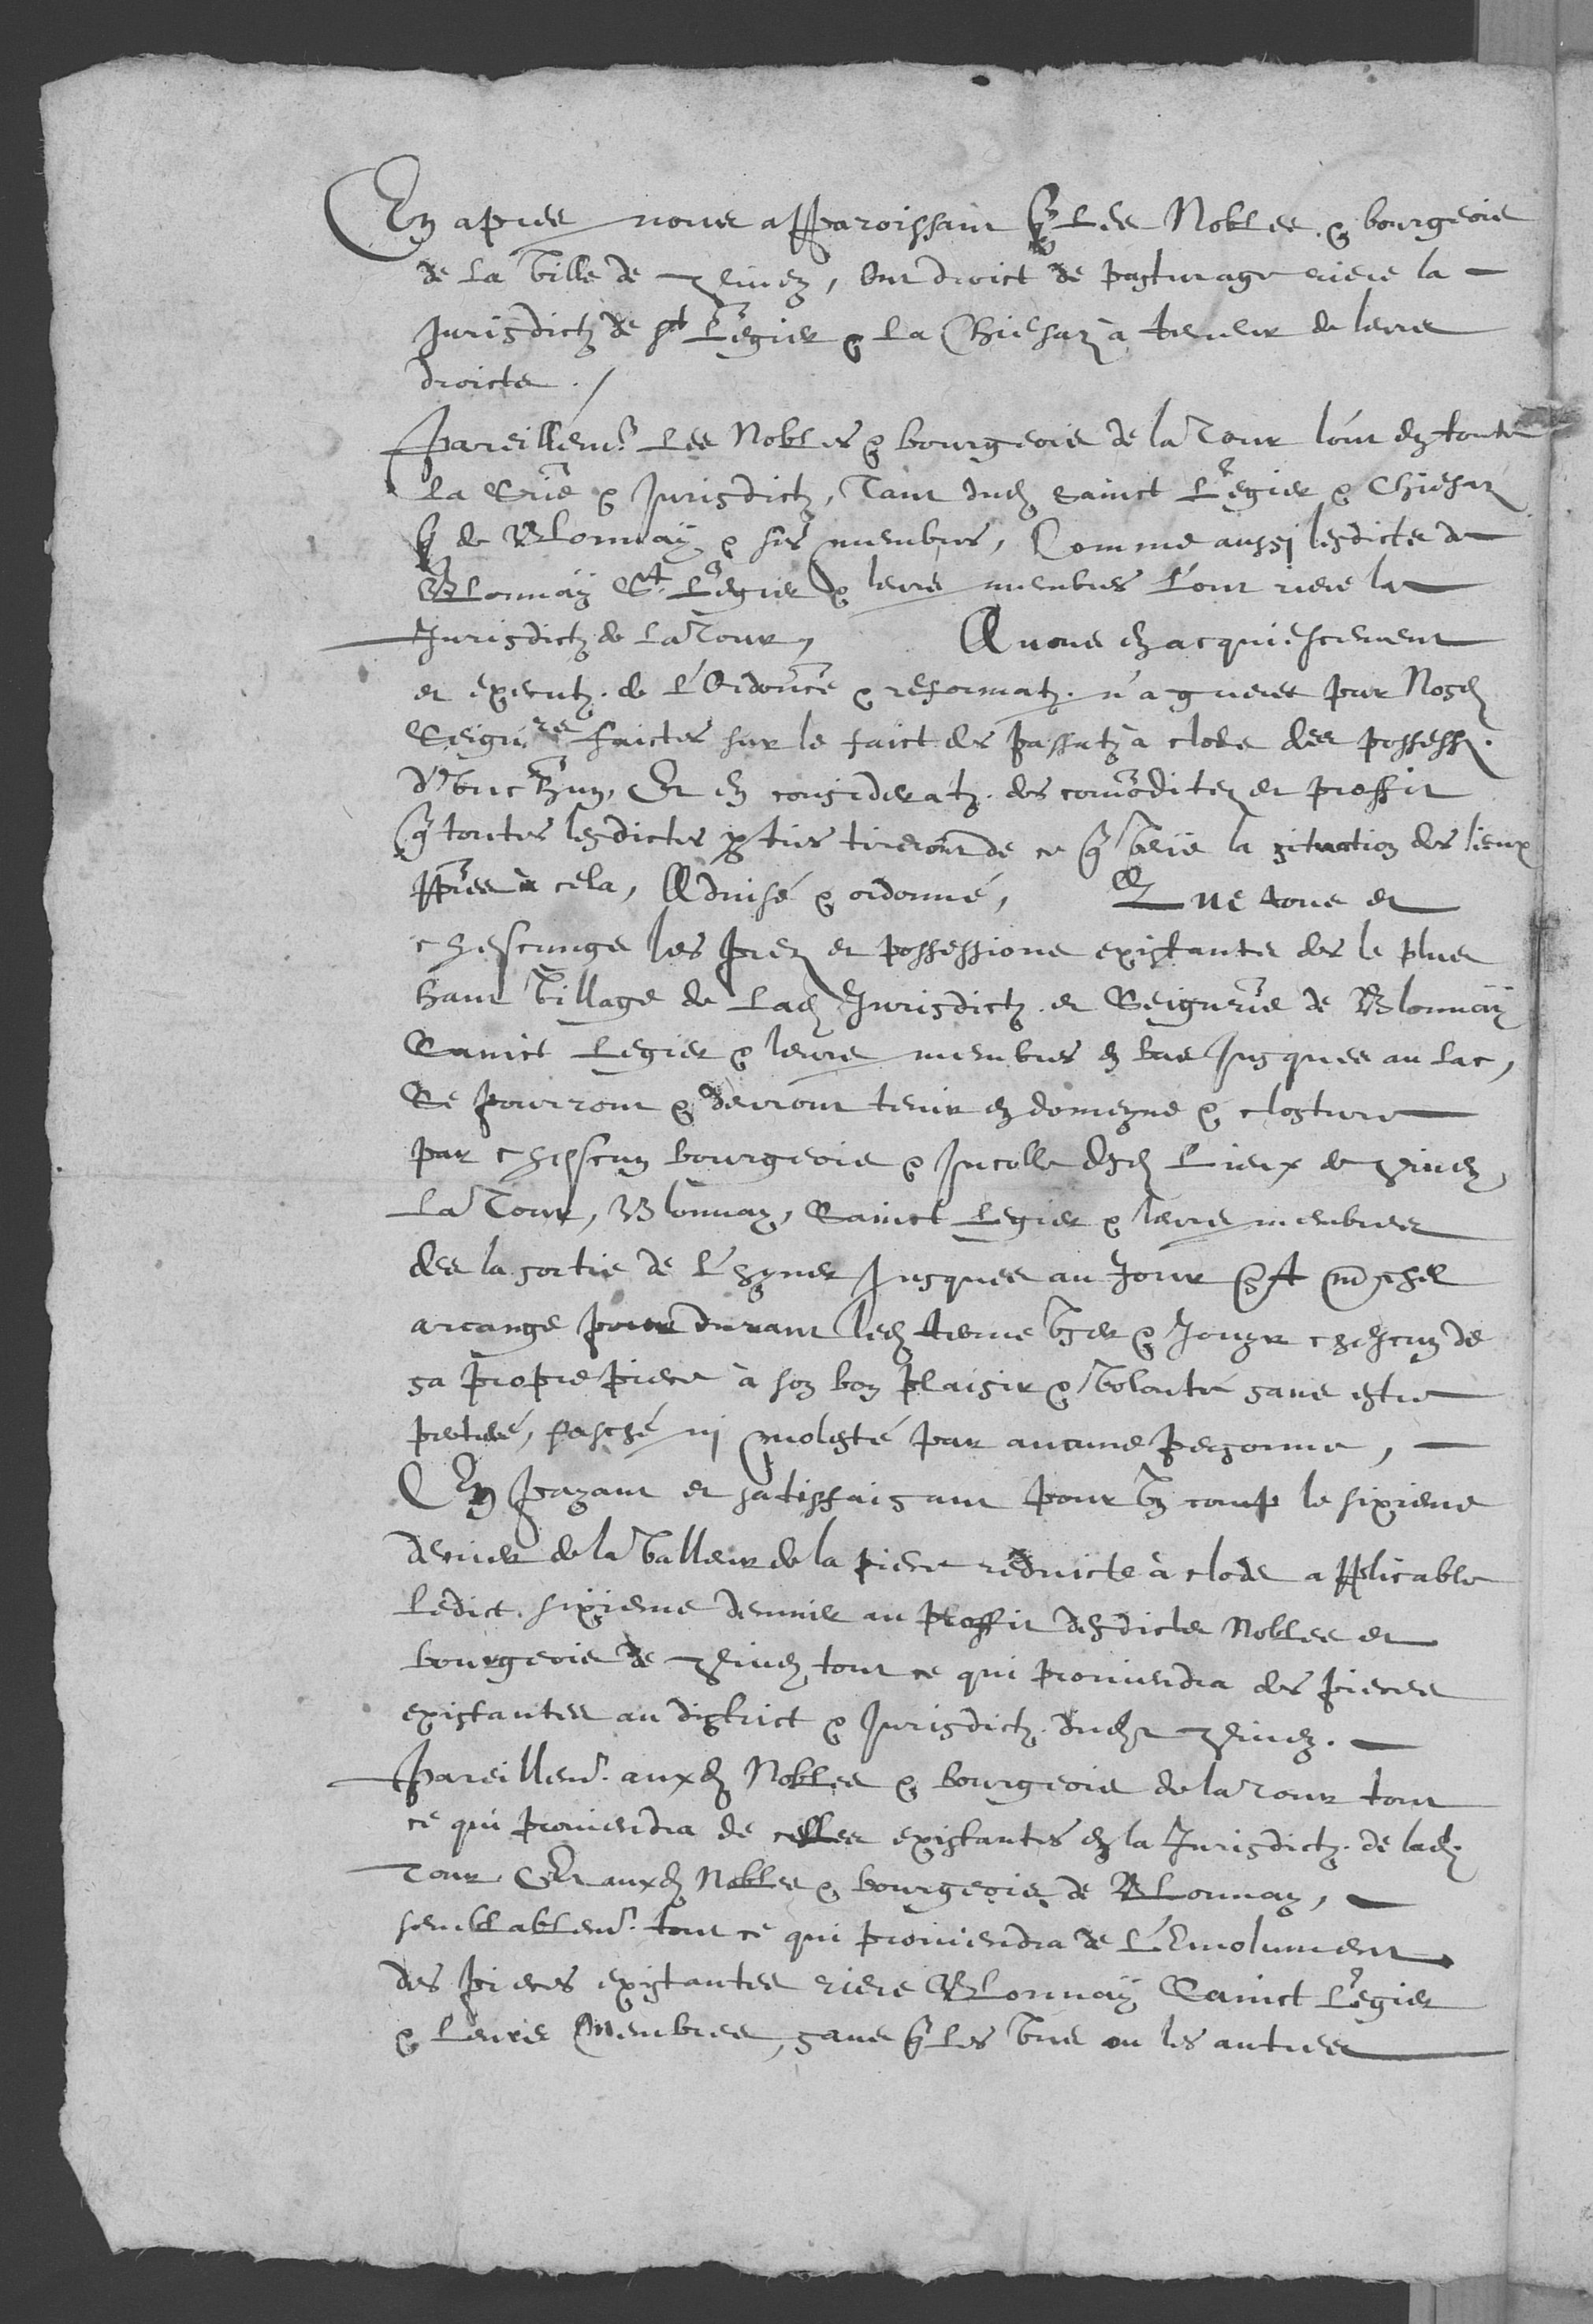 En apres nous apparoissant q̃ Les Nobles & bourgeois
de La Ville de Vivey, Ont droict de pasturage riere la
Jurisdict de st Legier & La Chiesaz à teneur de leurs
droicts ./
Pareillemt. Les Nobles & bourgeois de la Tour lont en toute
la Srie & Jurisdict, Tant dud Sainct Legier & Chiesaz
q̃ de Blonnay & ses membres, Comme aussi lesdicts de
Blonnay St. Legier & leurs membres L'ont riere la
Jurisdict de La Tour, Avons en acquiescement
et execut. de L'Ordonce & reformat. n'agueres par Nosd
Seigrs faictes sur le faict des passat à clos des possess.
d'ung chun, Et en considerat. des comoditez et proffit
q̃ toutes lesdictes pties tireront de ce q̃ Veüe la situation des lieux
ppres à cela, Advisé & ordonné, Que tous et
chescungs les prez et possessions existants des le plus
haut Village de Lad Jurisdict. et Seigrie de Blonnay
Sainct Legier & leurs membres en bas Jusques au lac,
Se pourront & devront tenir en domeyne & closture
par chescun bourgeois & Incolle desd Lieux de Vivey,
La Tour, Blonnay, Sainct Legier & leurs membres
des la sortie de L'hyver Jusques au Jour St Michel
arcange pour durant led terme User & Jouyr chescun de
sa propre piece à son bon plaisir & Volonté sans estre
perturbé, fasché ni molesté par aucune personne,
En payant et satisfaisant pour Un coup le sixieme
denier de la Valleur de la piece reduicte à clos applicable
Ledict sixieme dennier au proffit desdicts Nobles et
bourgeois de Vivey tout ce qui proviendra des pieces
existantes au district & Jurisdict. dudt Vivey.
Pareillemt. auxd Nobles & bourgeois de la Tour tout
ce qui proviendra de celles existantes en la Jurisdict. de lad.
Tour Et auxd Nobles & bourgeois de Blonnay,
semblablemt. tout ce qui proviendra de L'Emolument
des pieces existantes riere Blonnay Sainct Legier
& Leurs Membres, sans q̃ Les Uns ou les autres